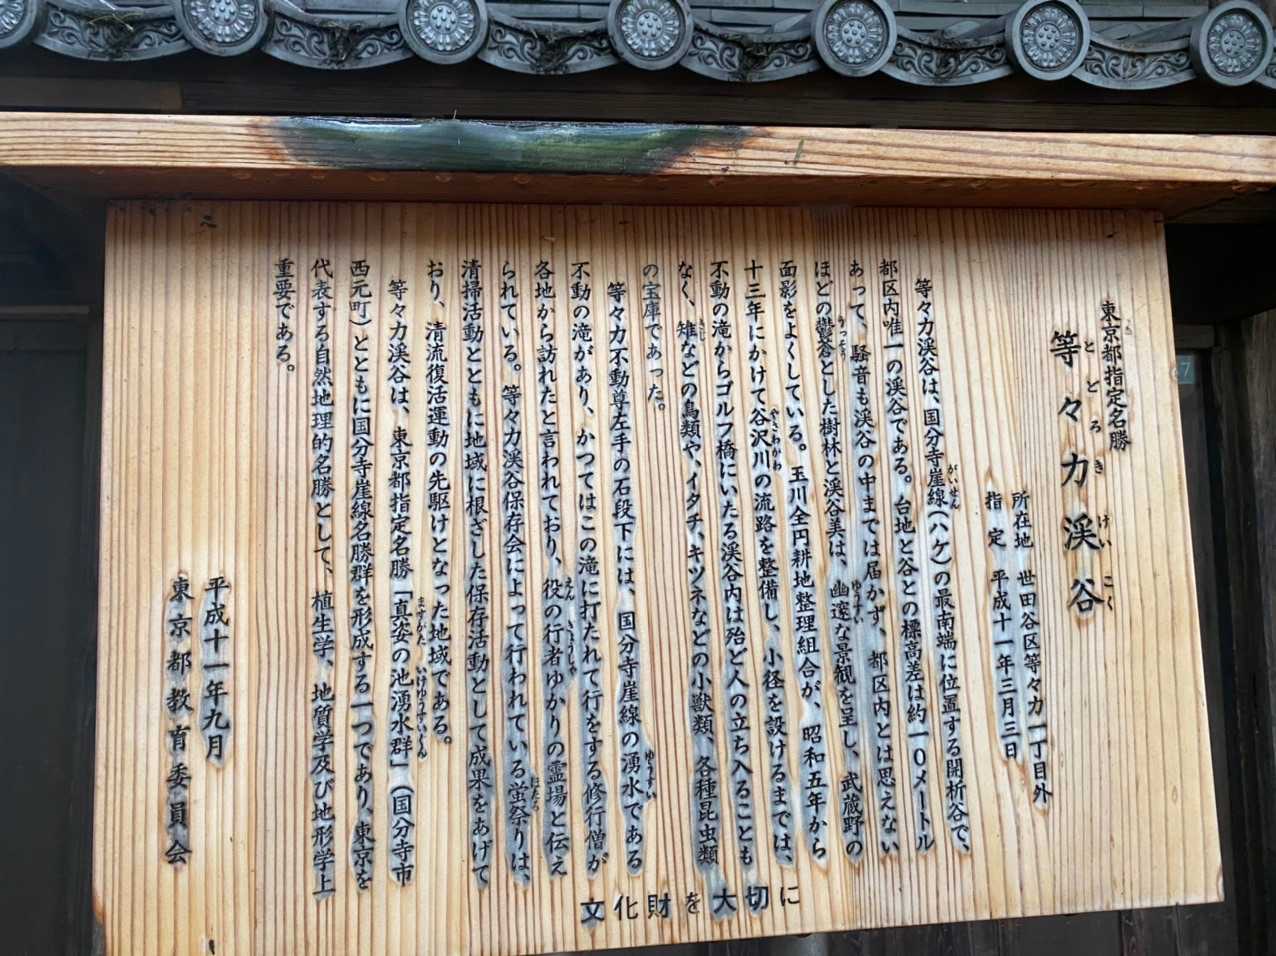 東京都指定名勝
等々力渓谷
とどろきけいこく
所在地 世田谷区等々力一丁目外
指定 平成十一年三月三日
等々力渓谷は、国分寺崖線(ハケ)の最南端に位置する開析谷で、
がいせん
都区内唯一の渓谷である。台地と谷との標高差は約一〇メートル
あって、騒音も渓谷の中までは届かず、都区内とは思えない
ほどの鬱蒼とした樹林と渓谷美は、幽邃な景観を呈し、武蔵野の
うっそう
ゆうすい
面影をよくしている。玉川全円耕地整理組合が、昭和五年から
十三年にかけて谷沢川の流路を整備し、小径を設けるまでは、
やざわがわ
不動の滝からゴルフ橋にいたる渓谷内は殆どと人の立ち入ることも
なく、雉などの鳥類や、イタチ、キツネなどの小獣類、各種昆虫類
きじ
の宝庫であった。
等々力不動尊左手の石段下には、国分寺崖線の湧水である
ゆうすい
不動の滝があり、かつてはこの滝に打たれて行をする修行僧が
各地から訪れたと言われており、役の行者ゆかりの霊場と伝え
えん
られている。等々力渓谷保存会によって行われている蛍祭りは、
ほたる
清掃活動とともに地域に根ざした保存活動として成果をあげて
おり、清流復活運動の先駆けとなった地域である。
等々力渓谷は、東京都指定名勝「真姿の池湧水群」(国分寺市
ますがた いけゆうすいぐん
西元町)とともに国分寺崖線名勝群を形成する一つであり、東京を
代表する自然地理的名勝として、植生学、地質学及び地形学上
重要である。
平成十一年九月
東京都教育委員会
文化財を大切に